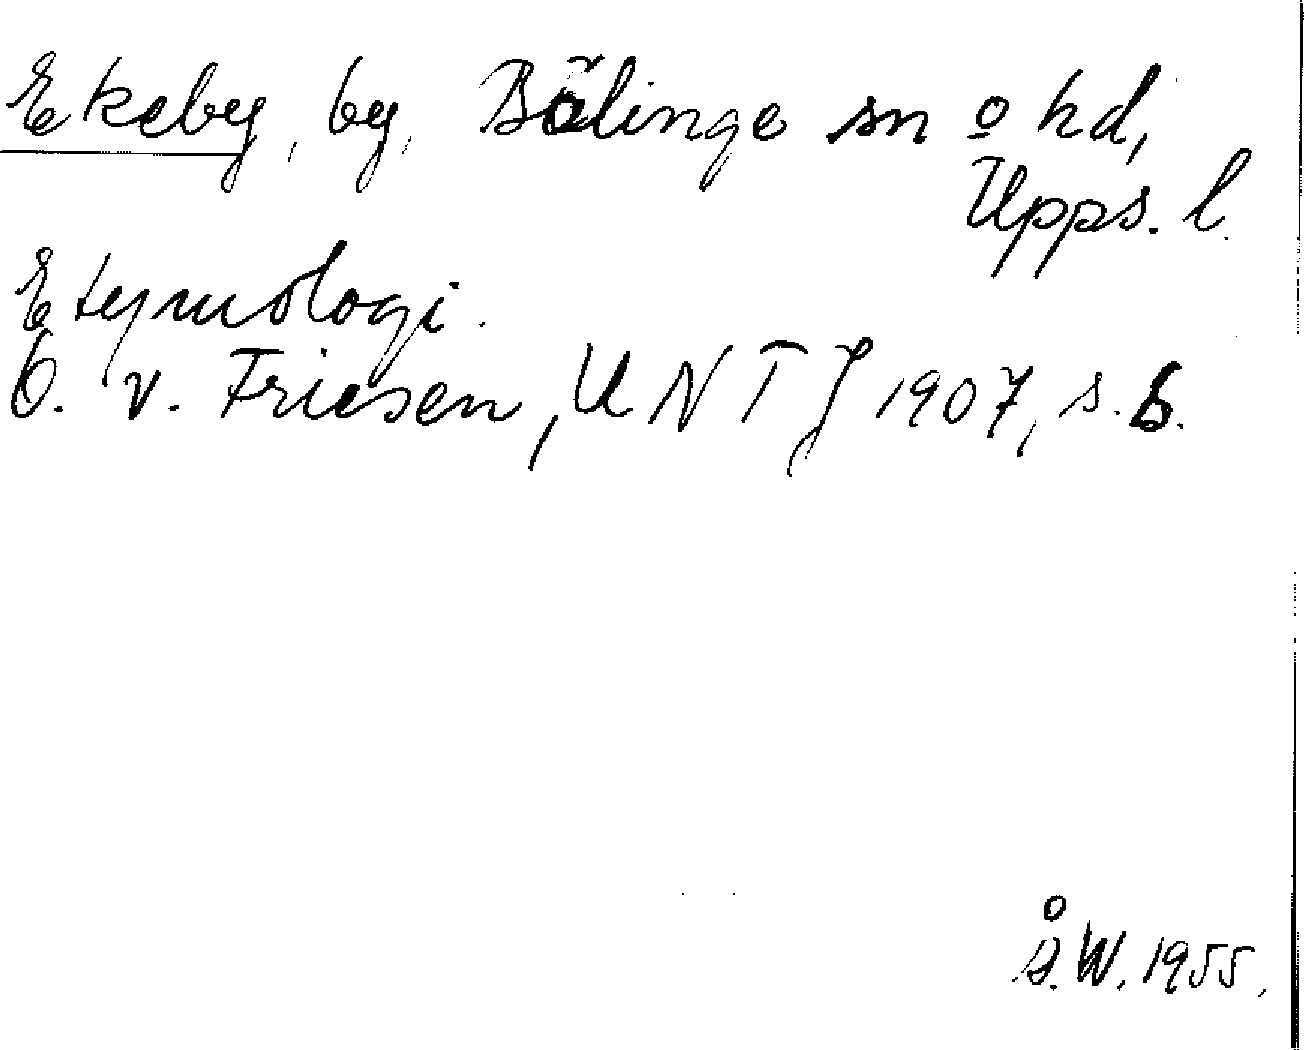 Ekeby, by, Bälinge sn o hd,
Upps. l.
Etymologi.
O. v. Friesen, UNTJ 1907, s. 5.
Å.W. 1955.